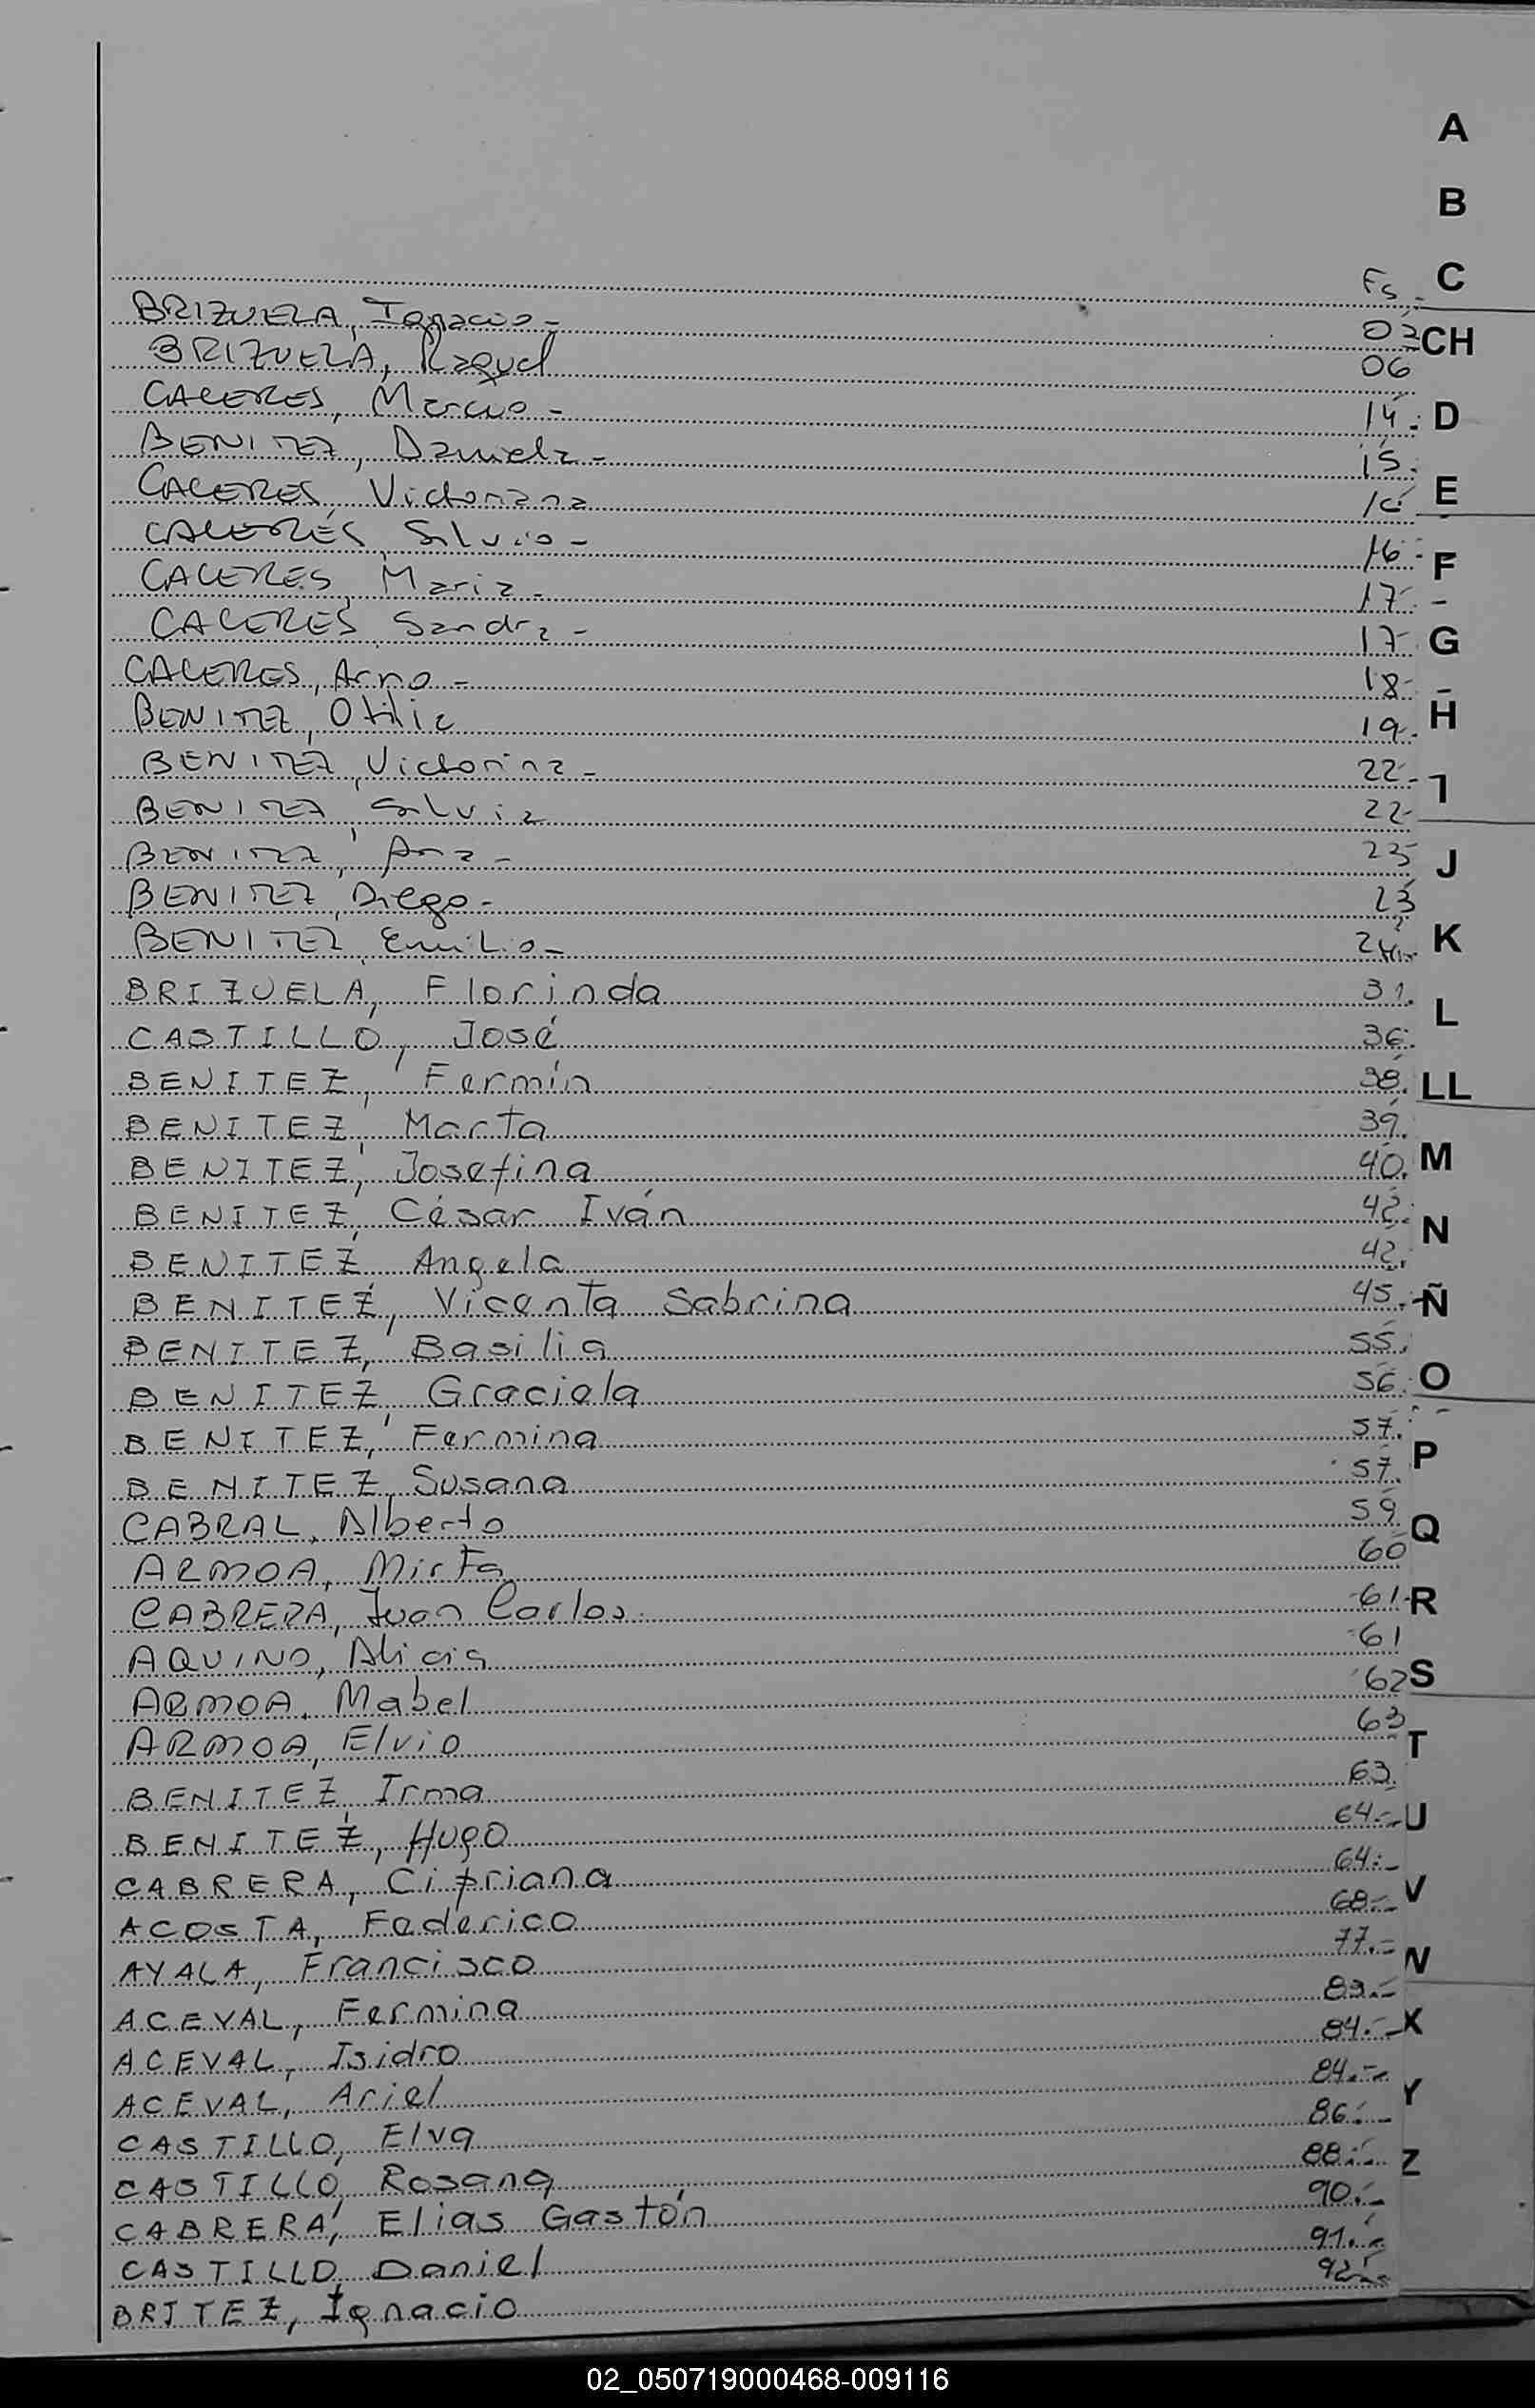 A
B
C
Fs.
BRIZUELA, Ignacio - 03
CH
BRIZUELA, Raquel 06
CACERES, Marcio - 14.
D
BENITEZ, Daniela - 15.
CACERES, Victoriana
E
CACERES, Silvio - 16.-
F
CACERES, Maria - 17.-
CACERES, Sandra - 17
G
CACERES, Arno - 18.-
BENITEZ, Otilia 19.
H
BENITEZ, Victorina - 22.-
I
BENITEZ, Silvia 22
BENITEZ, Ana - 23
J
BENITEZ, Diego - 23
BENITEZ, Emilio - 24.-
K
BRIZUELA, Florinda 31.
L
CASTILLO, José 36.
BENITEZ, Fermín 38.
LL
BENITEZ, Marta 39.
BENITEZ, Josefina 40.
M
BENITEZ, César Iván 42.
N
BENITEZ, Angela 42.
BENITEZ, Vicenta Sabrina 45.-
Ñ
BENITEZ, Basilia 55.
BENITEZ, Graciela 56.
O
BENITEZ, Fermina 57.
BENITEZ, Susana 57.
P
CABRAL, Alberto 59
Q
ARMOA, Mirta 60
CABRERA, Juan Carlos 61-
R
AQUINO, Alicia 61
ARMOA, Mabel 62
S
ARMOA, Elvio 63
T
BENITEZ, Irma 63.
BENITEZ, Hugo 64.-
U
CABRERA, Cipriana 64.-
ACOSTA, Federico 68.-
V
AYALA, Francisco 77.-
W
ACEVAL, Fermina 83.-
ACEVAL, Isidro 84.-
X
ACEVAL, Ariel 84.-
Y
CASTILLO, Elva 86.-
CASTILLO, Rosana 88.-
Z
CABRERA, Elias Gastón 90.-
CASTILLO, Daniel 91.-
BRITEZ, Ignacio 92.-
02_050719000468-009116